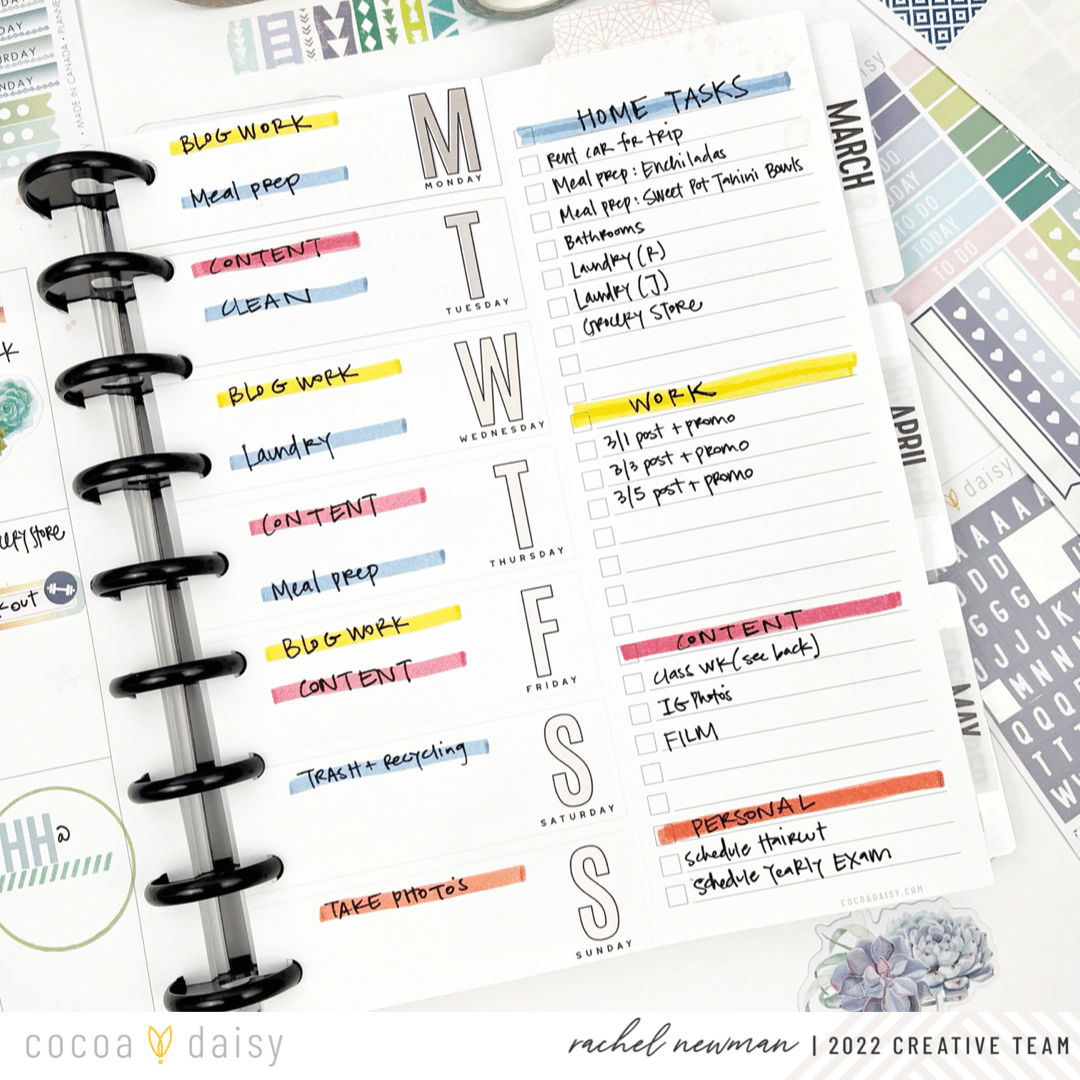 DAY
URDAY
NDAY
MADE IN CANADA • PLANNE
BLOG WORK
Meal prep
M
MONDAY
CONTENT
CLEAN
T
TUESDAY
BLOG WORK
Laundry
W
WEDNESDAY
CONTENT
Meal prep
T
THURSDAY
BLOG WORK
CONTENT
F
FRIDAY
TRASH + Recycling
S
SATURDAY
TAKE PHOTO'S
S
SUNDAY
HOME TASKS
Rent car for trip
Meal prep: Enchiladas
Meal prep: Sweet Pot Tahini Bowls
Bathrooms
Laundry (R)
Laundry (J)
Grocery Store
WORK
3/1 post + promo
3/3 post + promo
3/5 post + promo
CONTENT
Class WK (see back)
IG Photo's
FILM
PERSONAL
Schedule Haircut
Schedule Yearly Exam
COCOADAISY.COM
MARCH
APRIL
MAY
daisy
TO DO
TODAY
TO DO
daisy
AAAAA
DD
GGG
JJJJ
MNN
QQQ
TT
kout
HH
cocoa daisy
rachel newman | 2022 CREATIVE TEAM